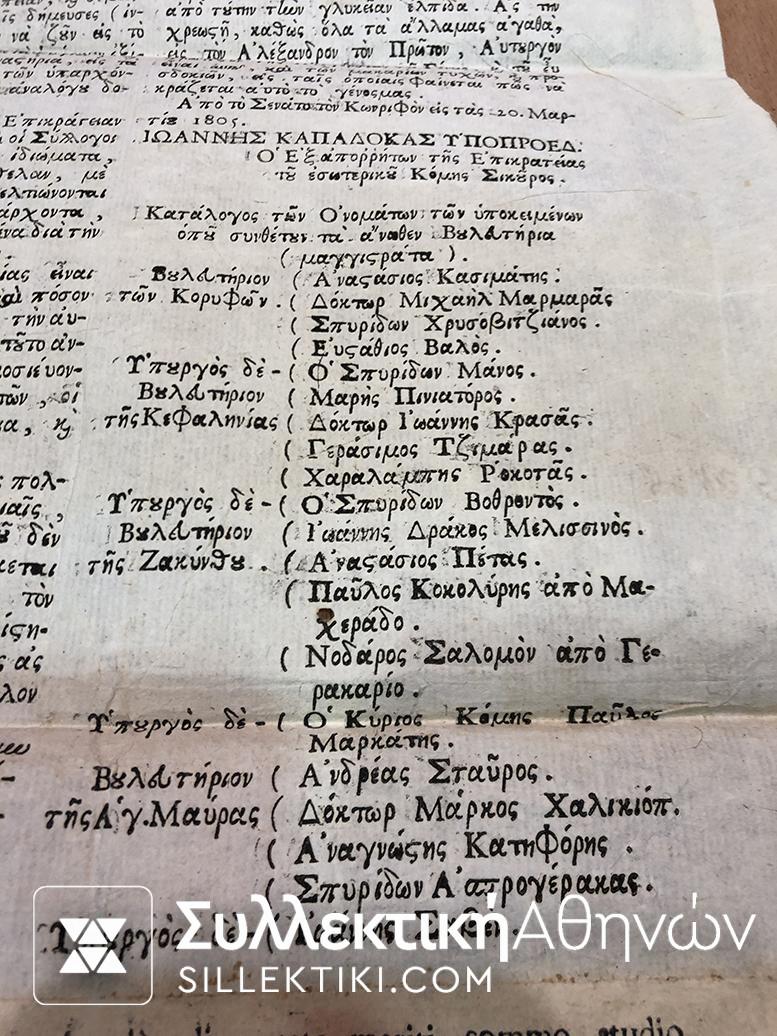 ἀπὸ τύτην τὴν γλυκεῖαν ἐλπίδα. Ἀς τὴν
νὰ ζῦν εἰς τὸ χρεωςῆ, καθὼς ὅλα τὰ ἄλλαμας ἀγαθὰ,
εἰς τὸν Ἀλέξανδρον τὸν Πρῶτον, Αὐτυργὸν
τῶν ὑπαρχόν- σδοκιῶν, εἰς ταῖς ὁποίαις φαίνεται πῶς νὰ
ἀναλόγυ δο- κράζεται αὐτὸ τὸ γένοςμας.
Ἀπὸ τὸ Σενάτο τὸν Κωνριφὸν εἰς τὰς 20. Μαρ-
Ἐπικράτειαν τίυ 1805.
οἱ Σύλλογοι ΙΩΑΝΝΗΣ ΚΑΠΑΔΟΚΑΣ ΥΠΟΠΡΟΕΔ.
ἰδιώματα, Ὁ Ἐξαπορρήτων τῆς Ἐπικρατείας
θελαν, μὲ τῦ ἐσωτερικῦ Κόμης Σικῦρος.
ελτιώνονται
άρχοντα, Κατάλογος τῶν Ὀνομάτων τῶν ὑποκειμένων
ένα διὰ τὴν ὁπῦ συνθέτυν τὰ ἄνωθεν Βυλευτήρια
( μαγγιςράτα ).
ίας εἶναι Βυλευτήριον ( Ἀναςάσιος Κασιμάτης.
πόσον τῶν Κορυφῶν. ( Δόκτωρ Μιχαὴλ Μαρμαρᾶς
τὴν αὐ- ( Σπυρίδων Χρυσοβιτζιάνος.
τῦτο ἀν- ( Εὐςάθιος Βαλὸς.
μοσιεύον- Ὑπυργὸς δὲ - ( Ὁ Σπυρίδων Μάνος.
των, οἱ Βυλευτήριον ( Μαρῆς Πινιατόρος.
α, ϗ τῆς Κεφαληνίας ( Δόκτωρ Ἰωάννης Κρασᾶς.
( Γεράσιμος Τζιμάρας.
πολ- ( Χαραλάμπης Ῥοκοτᾶς.
ιαῖς, Ὑπυργὸς δὲ - ( Ὁ Σπυρίδων Βοθροντὸς.
ῦ δὲν Βυλευτήριον ( Ἰωάννης Δράκος Μελισσινὸς.
κεται τῆς Ζακύνθυ. ( Ἀναςάσιος Πέτας.
τὸν ( Παῦλος Κοκολύρης ἀπὸ Μα-
ίςη- χεράδο.
ς ἀς ( Νοδάρος Σαλομὸν ἀπὸ Γε-
λον ρακαρίο.
Ὑπυργὸς δὲ - ( Ὁ Κύριος Κόμης Παῦλος
Μαρκάτης.
Βυλευτήριον ( Ἀνδρέας Σταῦρος.
τῆς Ἁγ. Μαύρας ( Δόκτωρ Μάρκος Χαλικιόπ.
( Ἀναγνώςης Κατηφόρης.
( Σπυρίδων Ἀσπρογέρακας.
Ὑπυργὸς δὲ - (
Συλλεκτική Αθηνών
SILLEKTIKI.COM